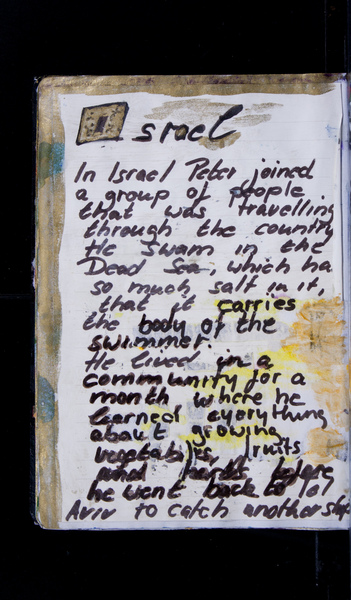 Israel
In Israel Peter joined
a group of people
that was travelling
through the country
He swam in the
Dead Sea, which ha
so much salt in it,
that it carries
the body of the
swimmer.
He lived in a
community for a
month where he
learned everything
about growing
vegetables, fruits
and herbs before
he went back to Tel
Aviv to catch another ship